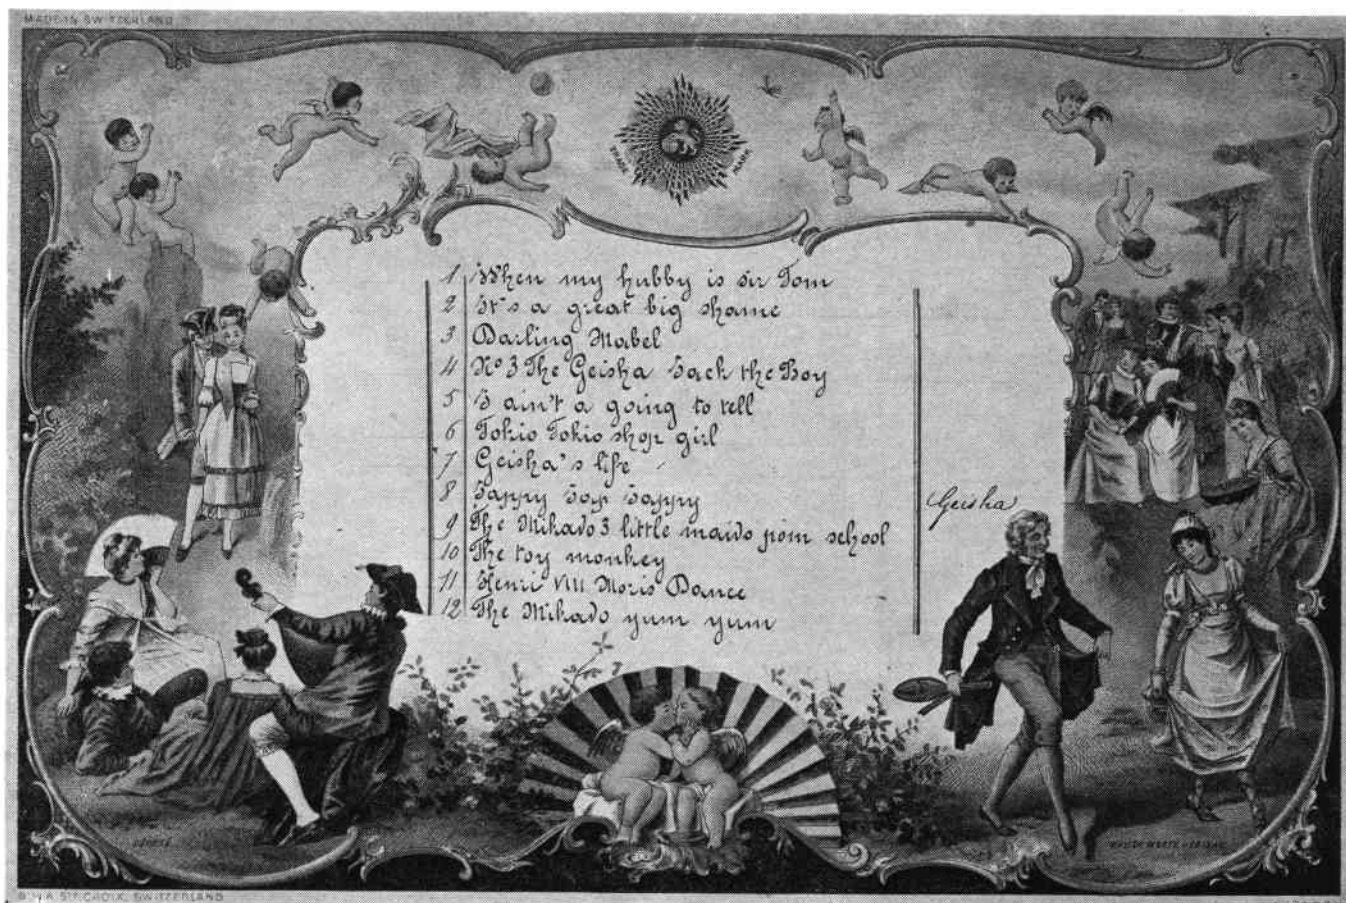 MADE IN SWITZERLAND
TRADE MARK
1 When my hubby is sir Tom
2 It's a great big shame
3 Darling Mabel
4 No 3 The Geisha Jack the Boy
5 I ain't a going to tell
6 Tokio Tokio shop girl
7 Geisha's life
8 Jappy Jap Jappy
Geisha
9 The Mikado 3 little maids from school
10 The toy monkey
11 Henri VIII Moris Dance
12 The Mikado yum yum
SWITZERLAND